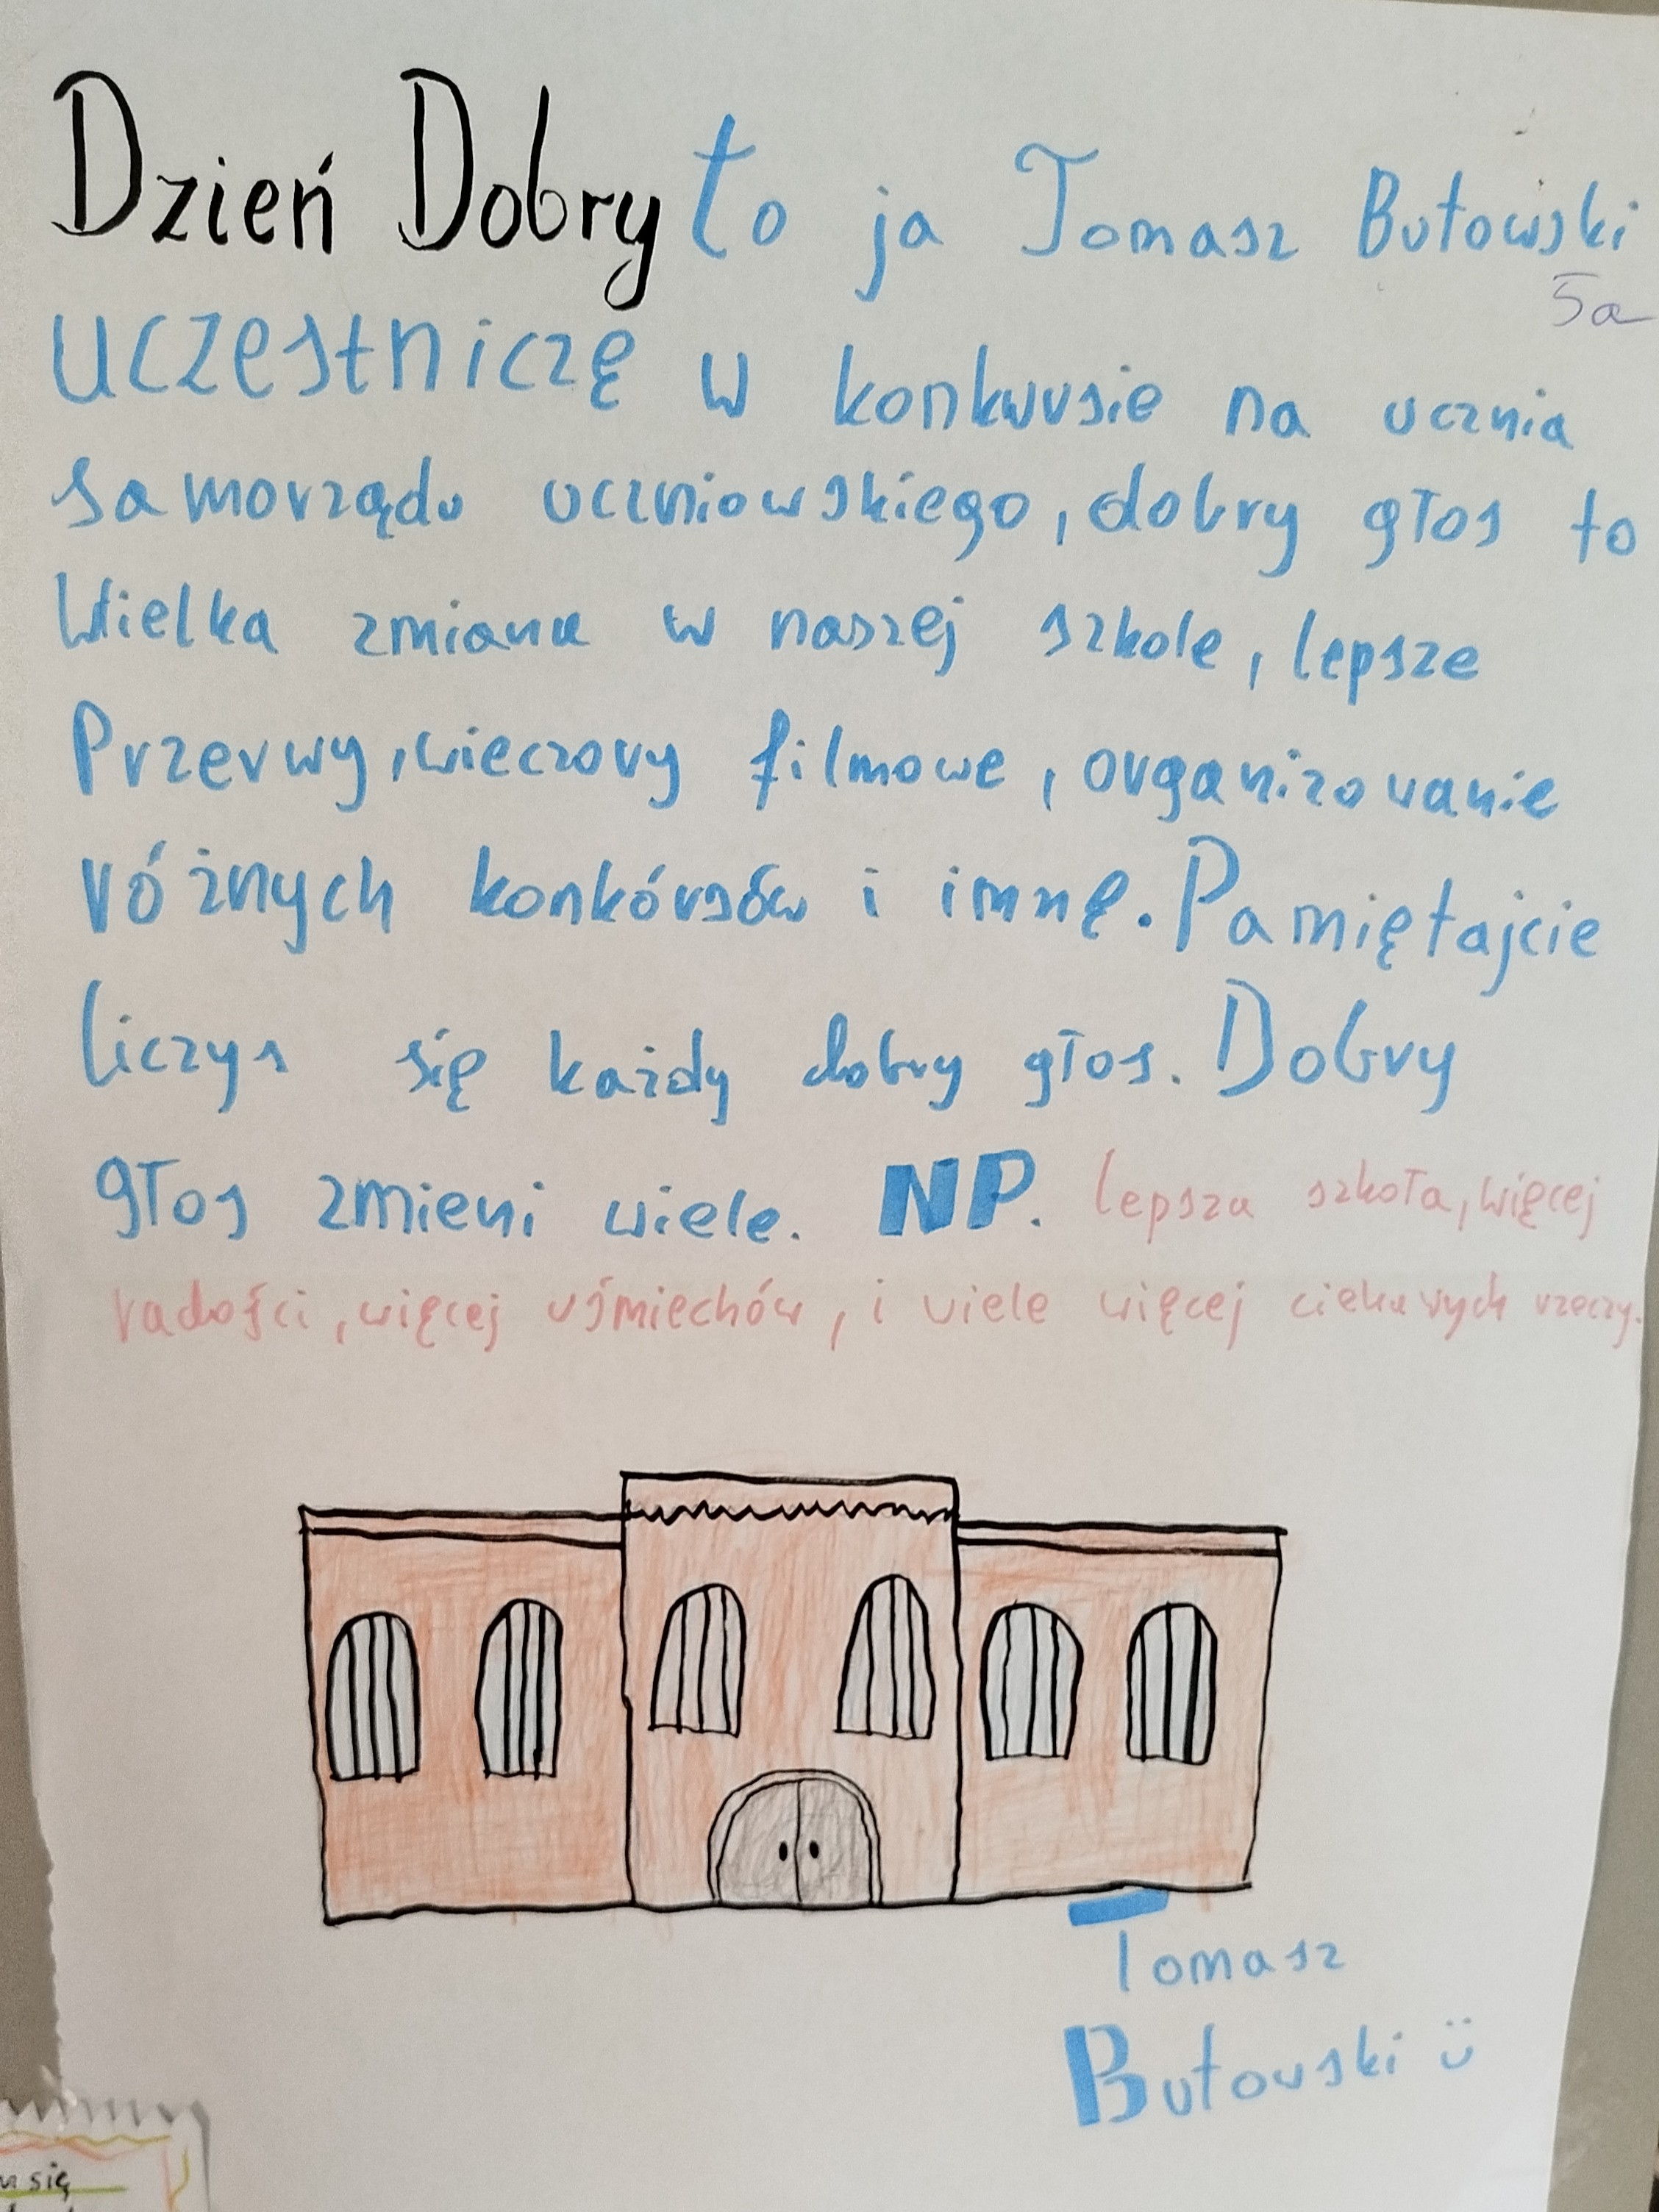 Dzień Dobry to ja Tomasz Butowski
5a
uczestniczę w konkursie na ucznia
samorządu uczniowskiego, dobry głos to
Wielka zmiana w naszej szkole, lepsze
Przerwy, wieczory filmowe, organizowanie
różnych konkórsów i innę. Pamiętajcie
liczys się każdy dobry głos. Dobry
głos zmieni wiele. NP. lepsza szkoła, więcej
radości, więcej uśmiechów, i wiele więcej ciekawych rzeczy.
Tomasz
Butowski ü
się